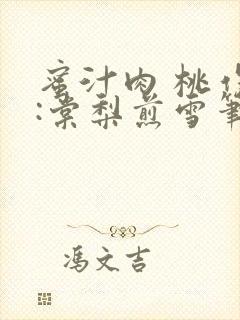 蜜汁肉桃作
:棠梨煎雪笔
馮文吉